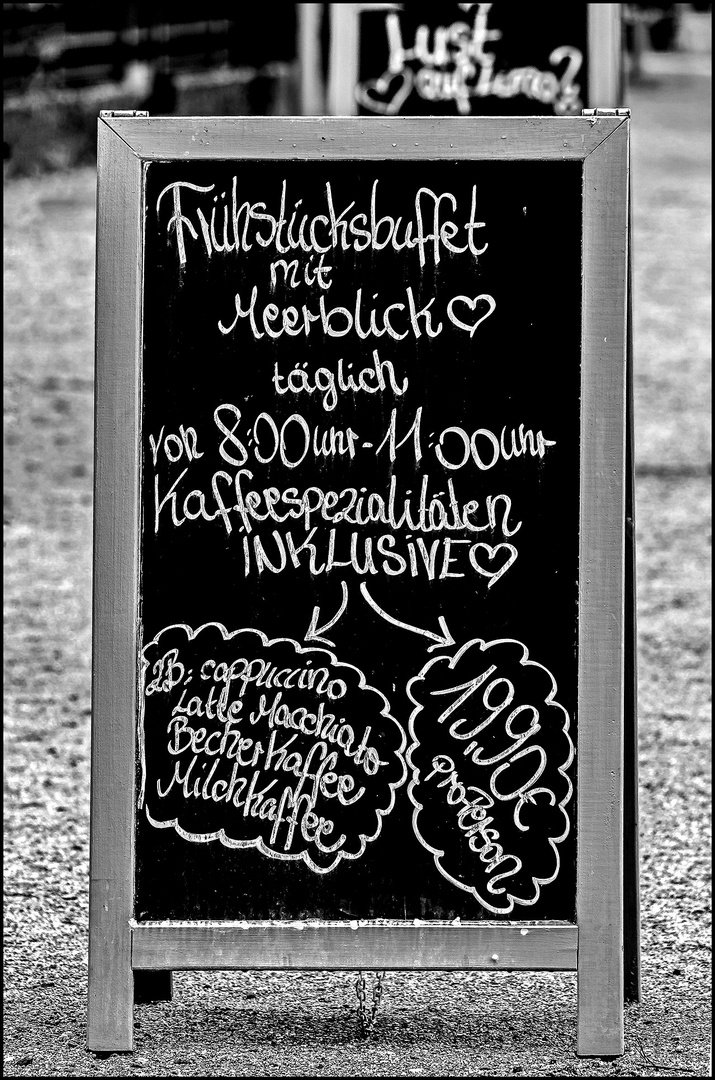 Lust
auf
Frühstücksbuffet
mit
Meerblick ♡
täglich
von 8:00 uhr - 11:00 uhr
Kaffeespezialitäten
INKLUSIVE ♡
ZB: cappuccino
Latte Macchiato
Becher Kaffee
Milchkaffee
19,90€
pro Person